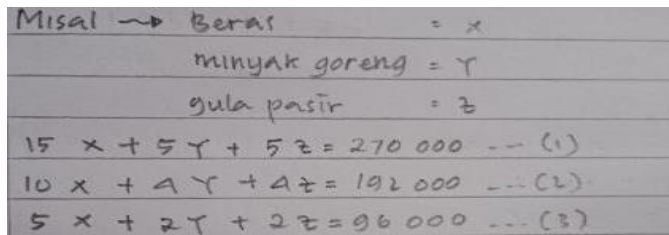 Misal → Beras = x
minyak goreng = Y
gula pasir = z
15 x + 5Y + 5z = 270 000 --- (1)
10 x + 4Y + 4z = 192 000 --- (2)
5 x + 2Y + 2z = 96 000 --- (3)